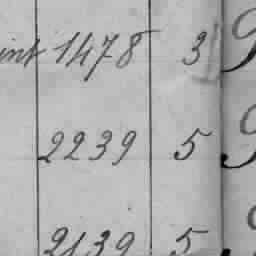 1478 3
2239 5
2139 5